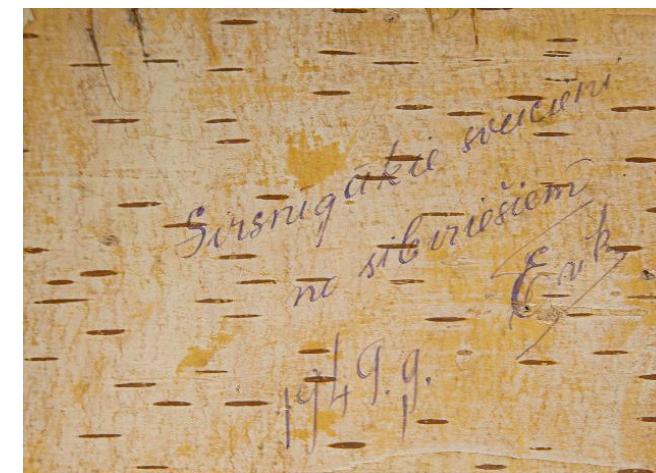 Sirsnigākie sveicieni
no sibiriešiem
1949.g.